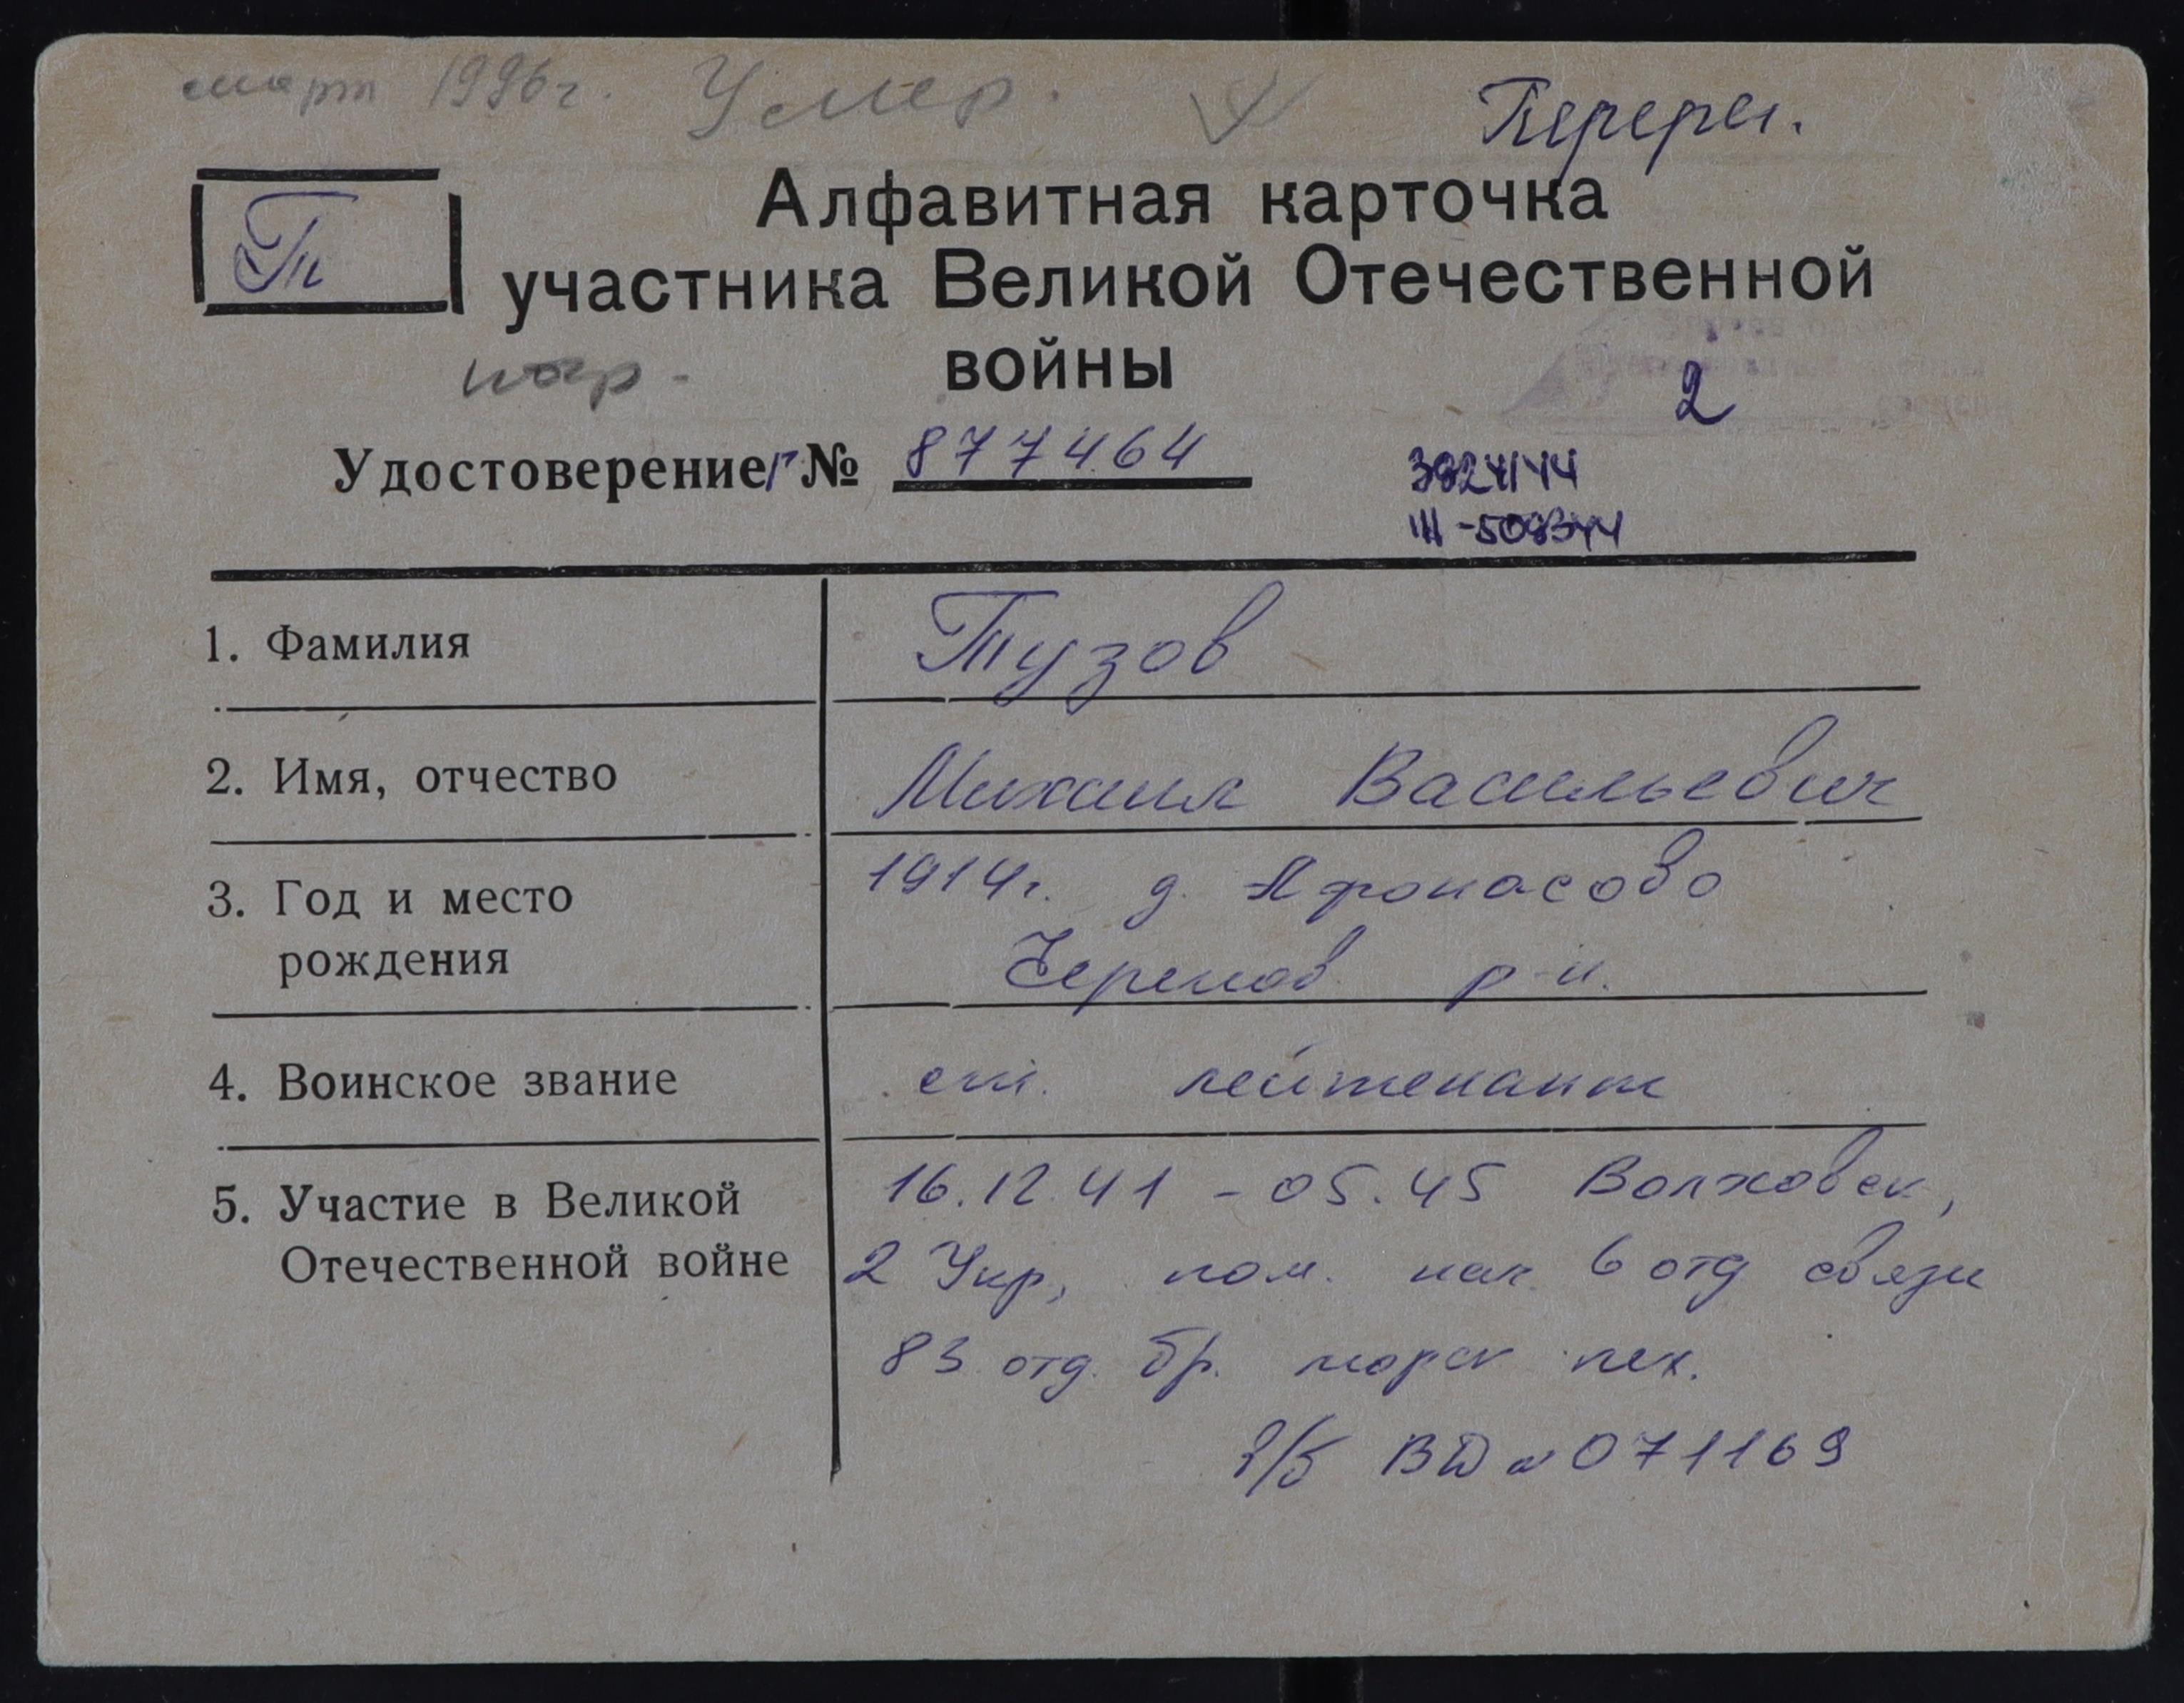 март 1996г. Умер. Перерег.
Алфавитная карточка
Т
участника Великой Отечественной
войны
2
Удостоверение Г № 877464
1. Фамилия Тузов
2. Имя, отчество Михаил Васильевич
3. Год и место 1914г. д. Афонасово
рождения Черепов р-н.
4. Воинское звание ст. лейтенант
5. Участие в Великой 16.12.41 - 05.45 Волховск,
Отечественной войне 2 Укр, пом. нач. 6 отд связи
83 отд. бр. морск пех.
в/б ВД № 071169